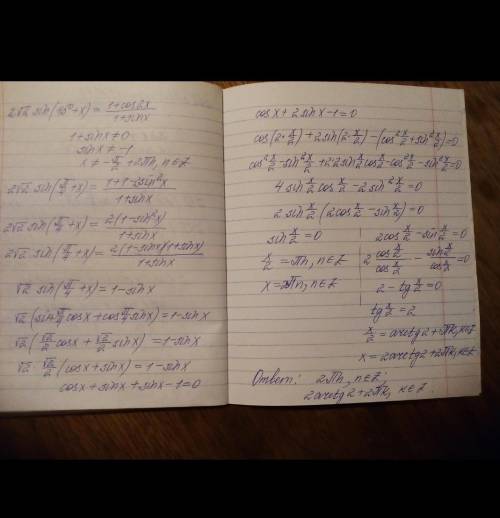 2√2 sin(45°+x) = (1+cos2x)/(1+sinx)
1+sinx≠0
sinx ≠ -1
x ≠ -π/2 + 2πn, n∈Z
2√2 sin(π/4+x) = (1+1-2sin²x)/(1+sinx)
2√2 sin(π/4+x) = 2(1-sin²x)/(1+sinx)
2√2 sin(π/4+x) = 2(1-sinx)(1+sinx)/(1+sinx)
√2 sin(π/4+x) = 1-sinx
√2 (sin π/4 cosx + cos π/4 sinx) = 1-sinx
√2 (√2/2 cosx + √2/2 sinx) = 1-sinx
√2 · √2/2 (cosx + sinx) = 1-sinx
cosx + sinx + sinx -1=0
cosx + 2sinx -1=0
cos(2·x/2) + 2sin(2·x/2) - (cos² x/2 + sin² x/2)=0
cos² x/2 - sin² x/2 + 2·2sin x/2 cos x/2 - cos² x/2 - sin² x/2=0
4 sin x/2 cos x/2 - 2sin² x/2 =0
2 sin x/2 (2cos x/2 - sin x/2) =0
sin x/2 =0
x/2 = πn, n∈Z
x = 2πn, n∈Z
2cos x/2 - sin x/2 =0
2 (cos x/2)/(cos x/2) - (sin x/2)/(cos x/2) =0
2 - tg x/2 =0
tg x/2 = 2
x/2 = arctg2 + πk, k∈Z
x = 2arctg2+2πk, k∈Z
Ответ: 2πn, n∈Z;
2arctg2+2πk, k∈Z.